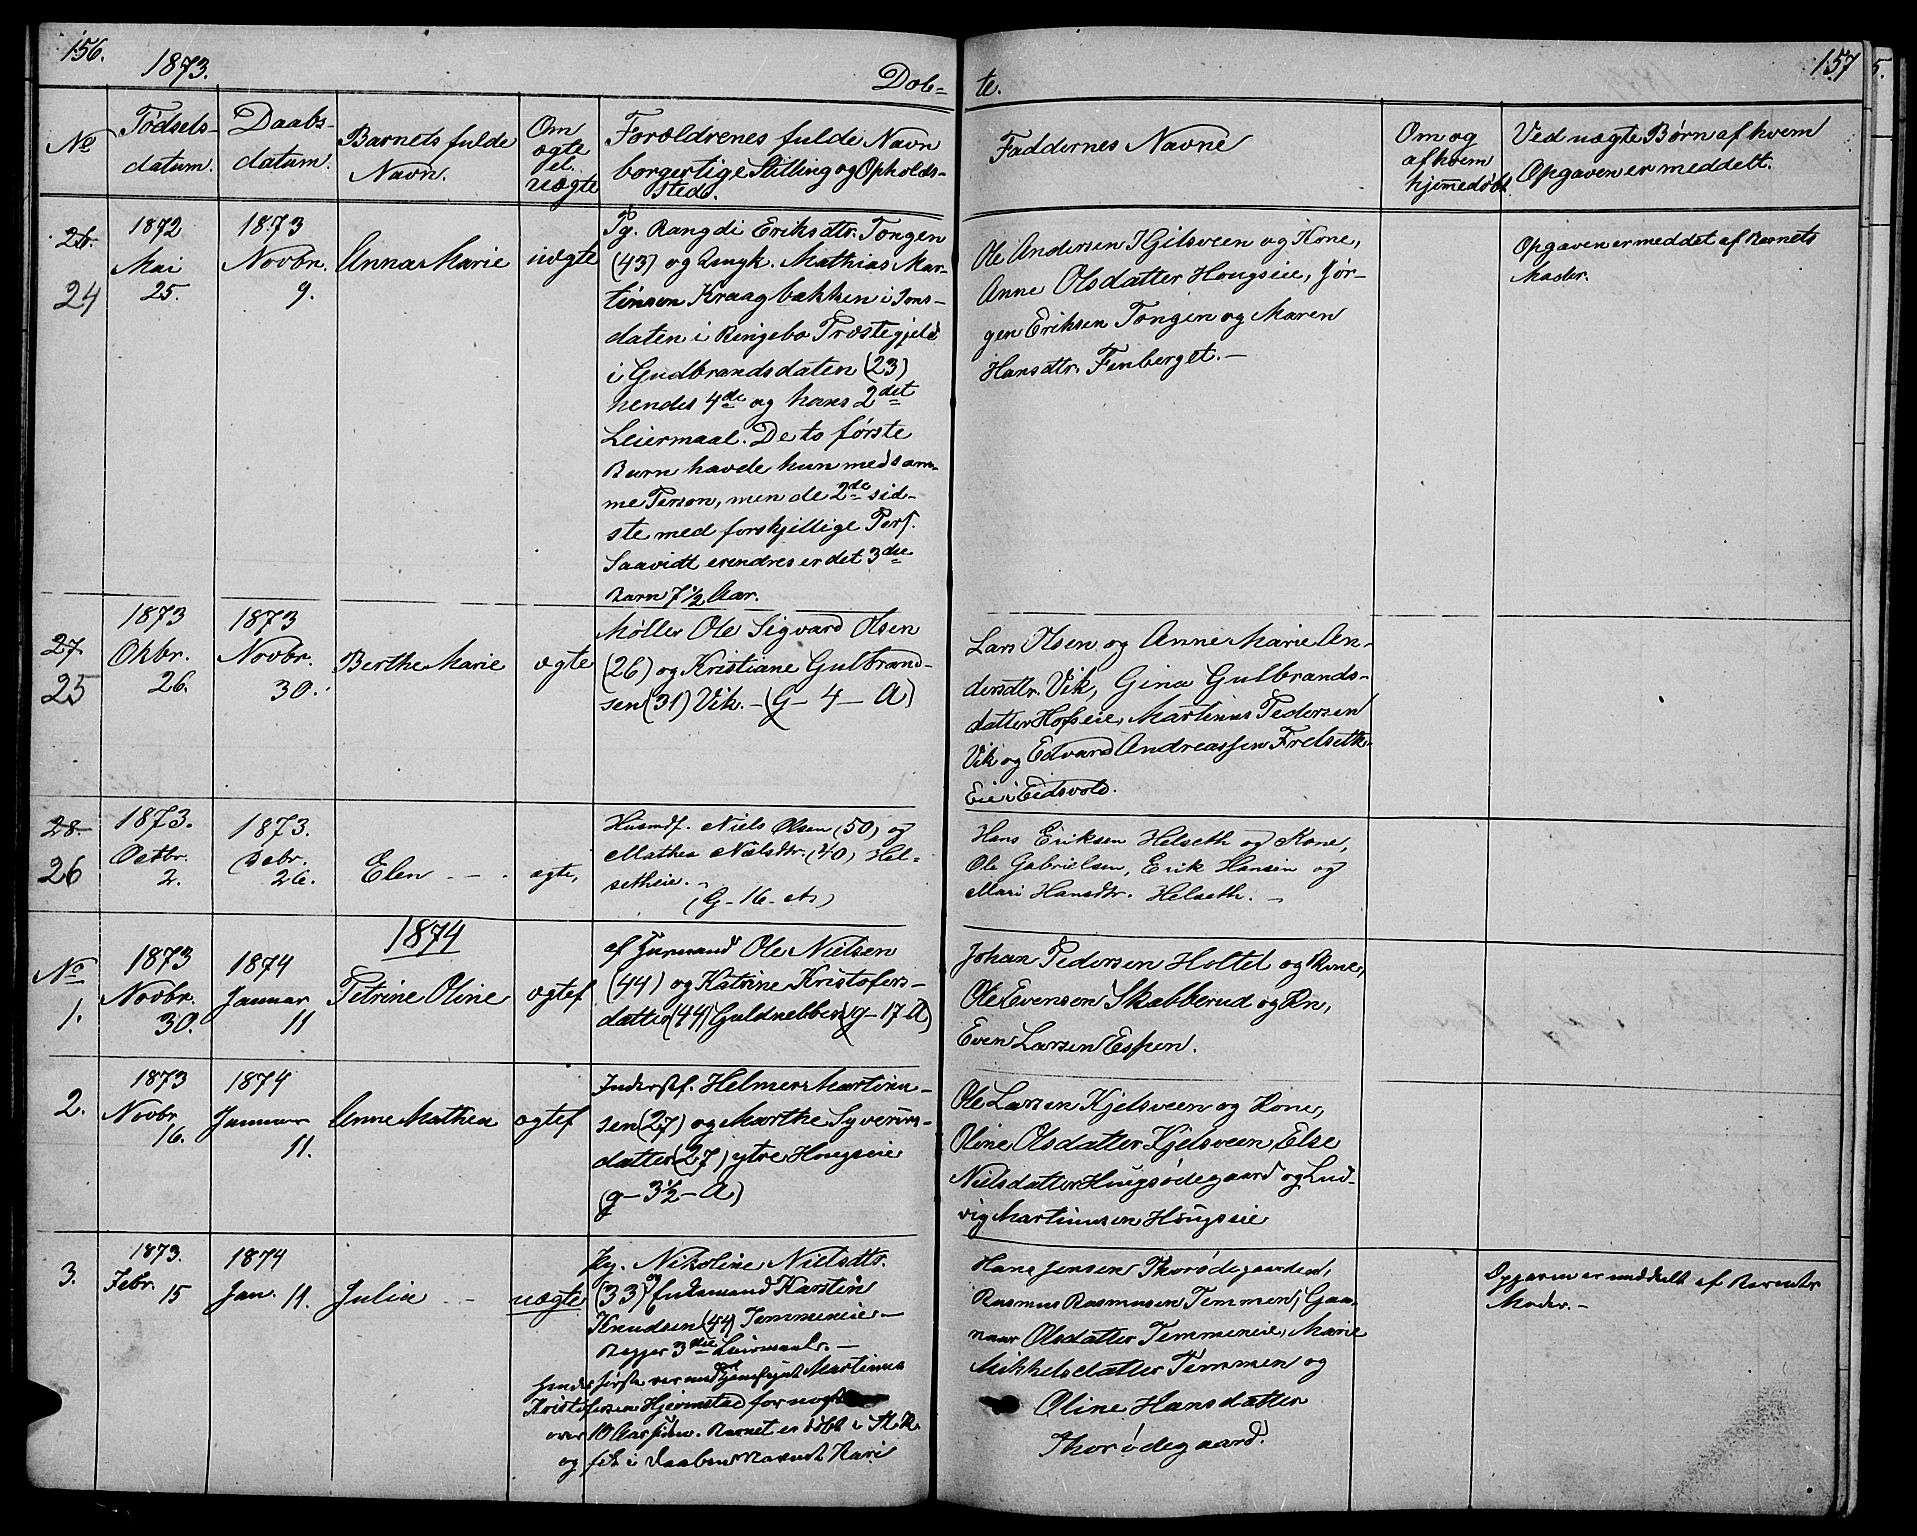 156.
1873.
Dob-
te.
157
5.
No
Fødsels-
datum.
Daabs-
datum.
Barnets fulde
Navn.
Om
ægte
el.
uægte
Forældrenes fulde Navn
borgerlige Stilling og Opholds-
sted.
Faddernes Navne
Om og
af hvem
hjemmedøbt
Ved uægte Børn af hvem
Opgaven er meddelt.
26
24
1872
Mai
25.
1873
Novbr.
9.
Anna Marie
uægte
Pg. Rangdi Eriksdtr. Tongen
(43) og Ungk. Mathias Mar-
tinsen Kraagbækken i Jons-
dalen i Ringebo Præstegjeld
i Gudbrandsdalen (23)
hendes 4de og hans 2det
Leiermaal. De to første
Barn havde hun med sam-
me Person, men de 2de sid-
ste med forskjellige Pers.
Saavidt erendres er det 3die
Barn 7 1/2 Aar.
Ole Andersen Kjelsveen og Kone,
Anne Olsdatter Hougseie, Jør-
gen Eriksen Tongen og Maren
Hansdtr. Finberget. –
Opgaven er meddet af Barnets
Moder.
27
25
1873
Okbr.
26.
1873
Novbr.
30.
Berthe Marie
ægte
Møller Ole Sigvard Olsen
(26) og Kristiane Gulbrand-
sen (31) Vik. – (G – 4 – A)
Lars Olsen og Anne Marie An-
dersdtr. Vik, Gina Gulbrands-
datter Hofseie, Martinus Pedersen
Vik og Edvard Andreassen Frelseth-
Eie i Eidsvold.
28
26
1873.
Octbr.
2.
1873.
Debr.
26.
Elen
ægte,
Husmd. Niels Olsen (50) og
Mathea Nielsdtr. (40) Hel-
setheie. –
(G – 16 – A)
Hans Eriksen Helseth og Kone,
Ole Gabrielsen, Erik Hansen og
Mari Hansdtr. Helseth. –
1874
No
1.
1873
Novbr.
30.
1874
Januar
11
Petrine Oline
ægtef
af Husmand Ole Nielsen
(44) og Katrine Kristofers-
datter (44) Guldnebben (g – 17 – A)
Johan Pedersen Holtet og Kone,
Ole Evensen Skabberud og Kn,
Even Larsen Espen.
2.
1873
Novbr
16.
1874
Januar
11.
Anne Mathea
ægtef
Inderstf. Helmer Martinu-
sen (27) og Marthe Syverins-
datter (27) ytre Hougseie
(g – 3 1/2 – A)
Ole Larsen Kjelsveen og Kone,
Oline Olsdatter Kjelsveen, Else
Nielsdatter Hougsødegaard og Lud-
vig Martinusen Hougseie
3.
1873.
Febr.
15
1874
Jan. 11.
Julia
uægte
Pg. Nikoline Nielsdtr.
(33) og Enkemand Karstin
Knudsen (44) Temmeneie –
Begges 3die Leiermaal. –
Hendes første var med Martinus
Kristofersen Hjermstad for
over 10 Aar siden. Barnet er døbt i
og fik i Daaben Navnet Kari
Hans Jensen Thorødegaarden,
Rasmus Rasmusen Temmen, Gun-
naur Olsdatter Temmeneie, Marie
Mikkelsdatter Temmen og
Oline Hansdatter
Thorødegaard.
Opgaven er meddelt af Barnets
Moder. –